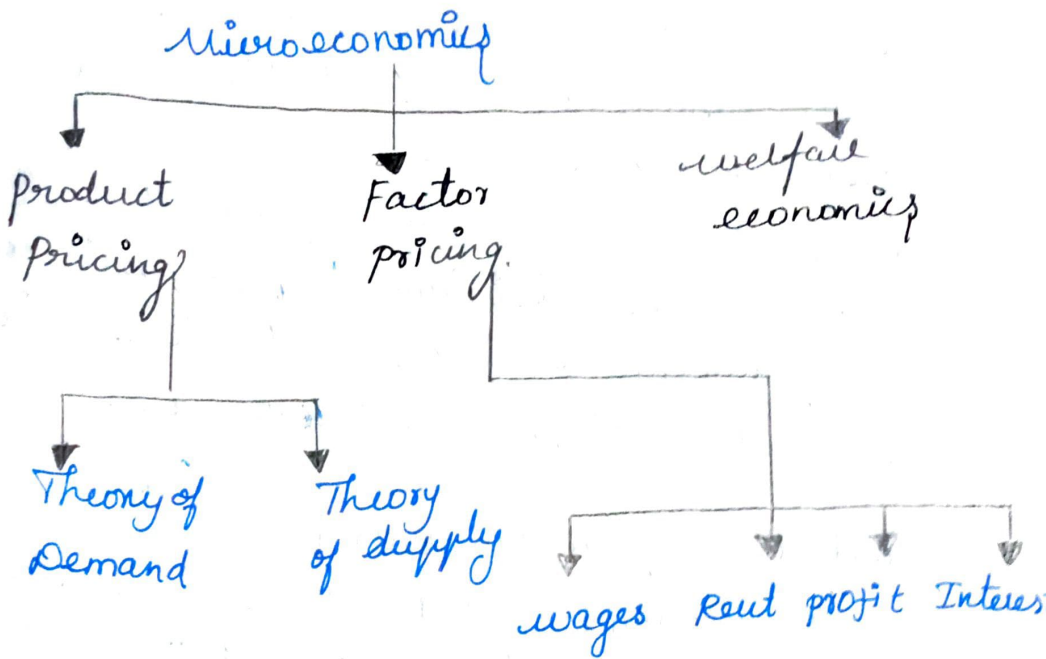 Microeconomics
Product
Pricing
Factor
pricing.
welfare
economics
Theory of
Demand
Theory
of supply
wages Rent profit Interes